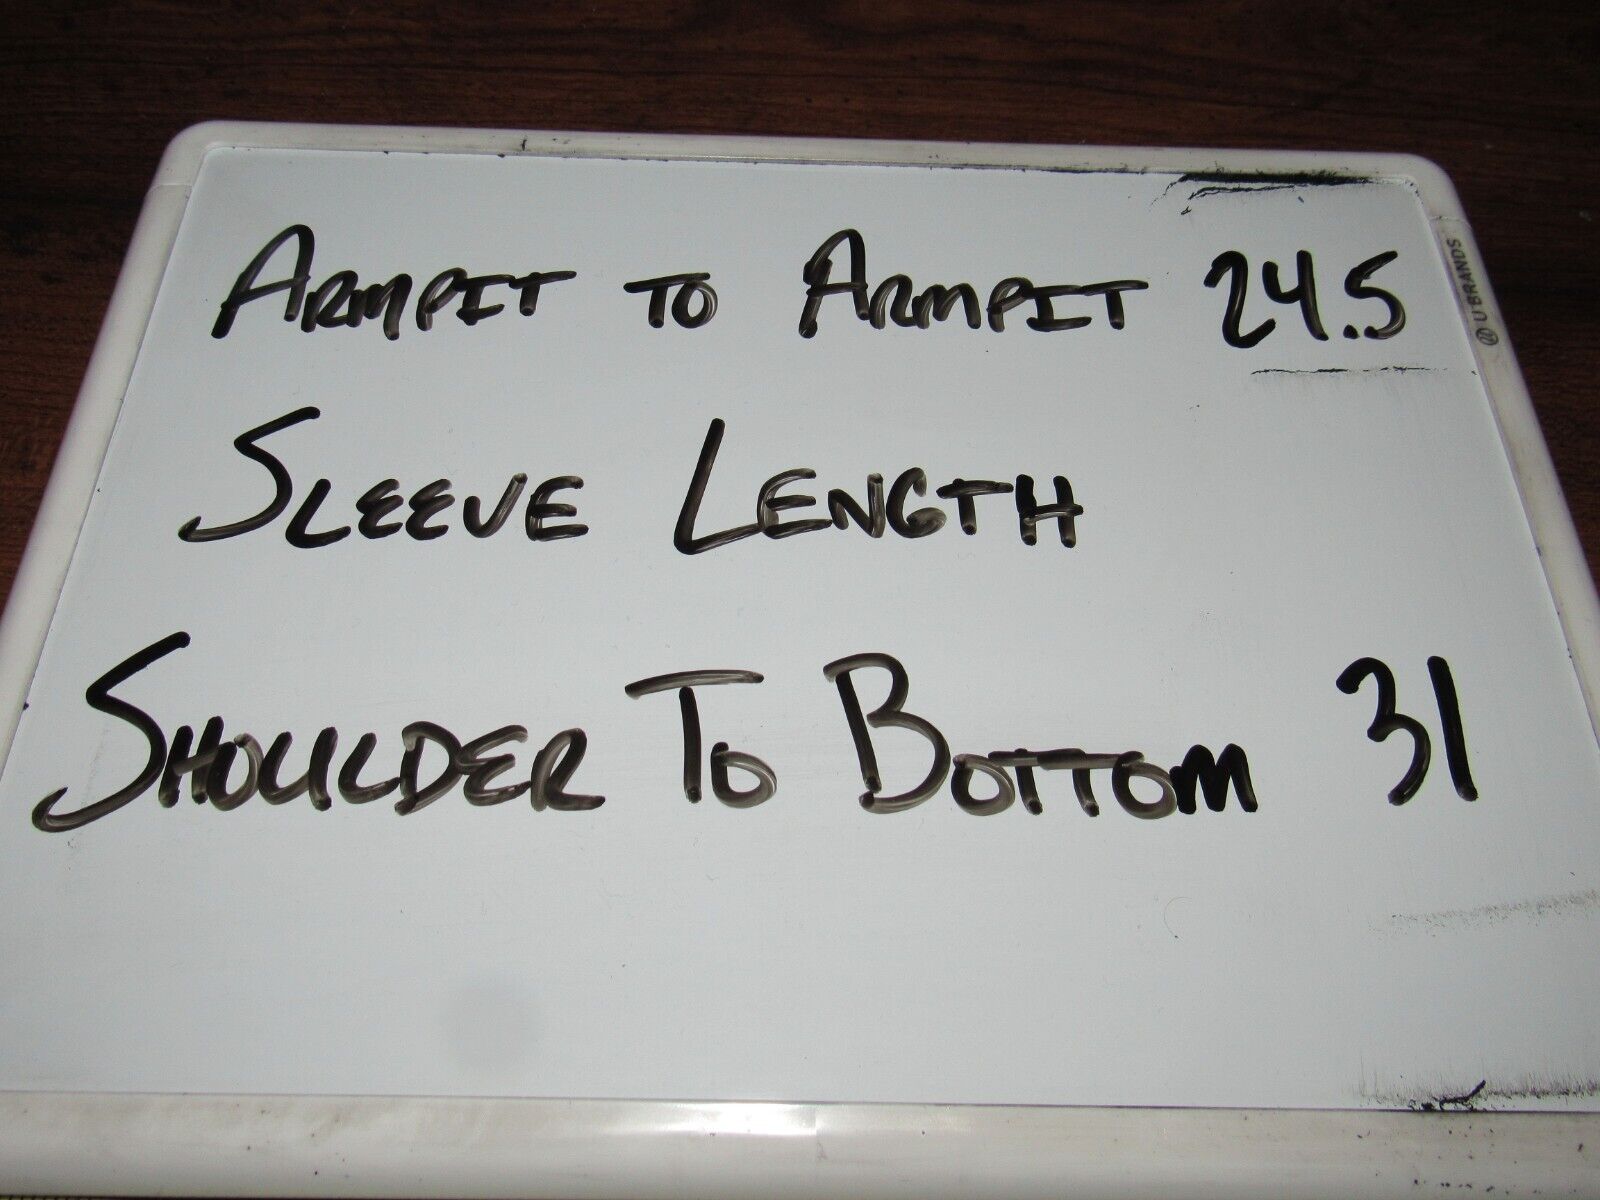 ARMPIT TO ARMPIT 24.5
U BRANDS
SLEEVE LENGTH
SHOULDER TO BOTTOM 31